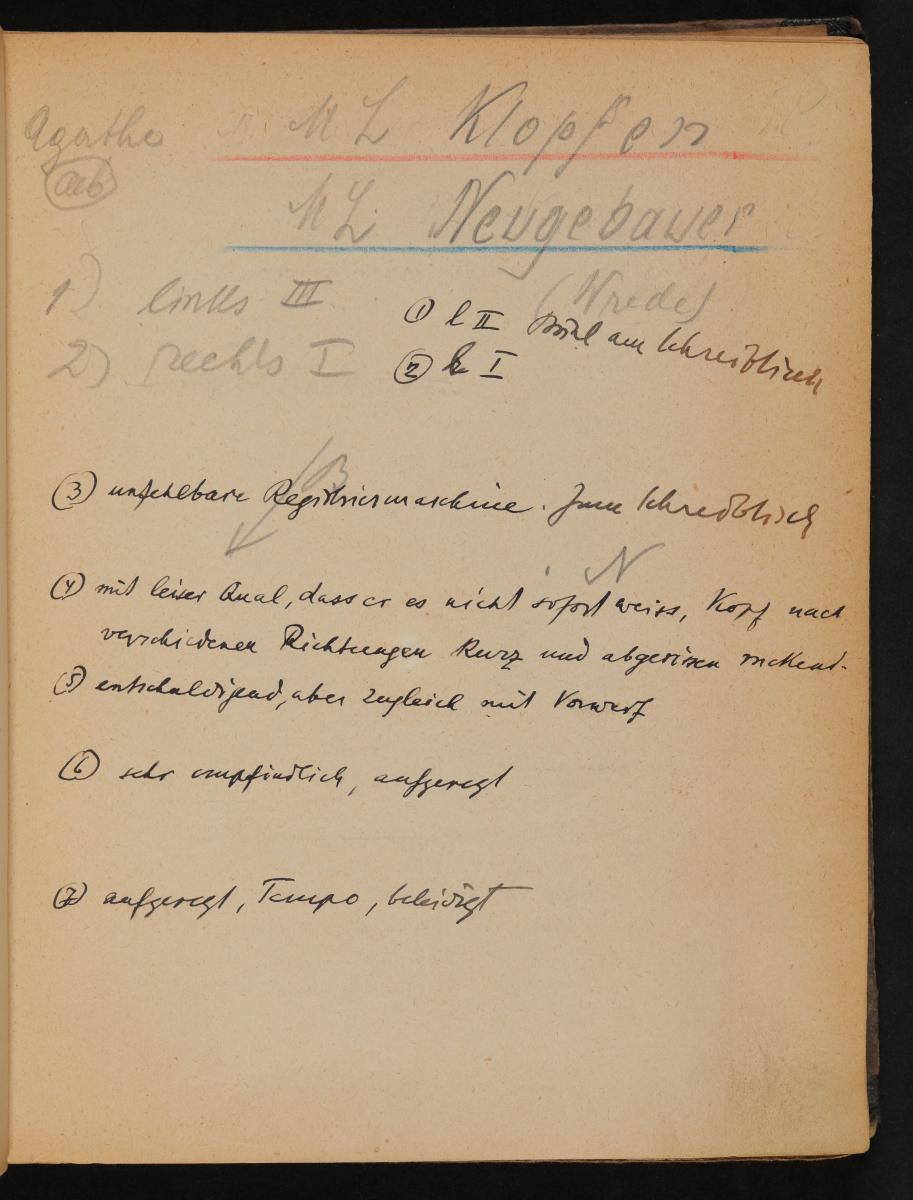 Agathe ML Klopfen
ab
ML Neugebauer
(Wrede)
1) links III
① l II am Schreibtisch
2) rechts I
② I
B
③ unfehlbare Registriermaschine. Zum Schreibtisch
N
④ mit leiser Qual, dass er es nicht sofort weiss, Kopf nach
verschiedenen Richtungen kurz und abgerissen ruckend.
⑤ entschuldigend, aber zugleich mit Vorwurf
⑥ sehr empfindlich, aufgeregt
⑦ aufgeregt, Tempo, beleidigt